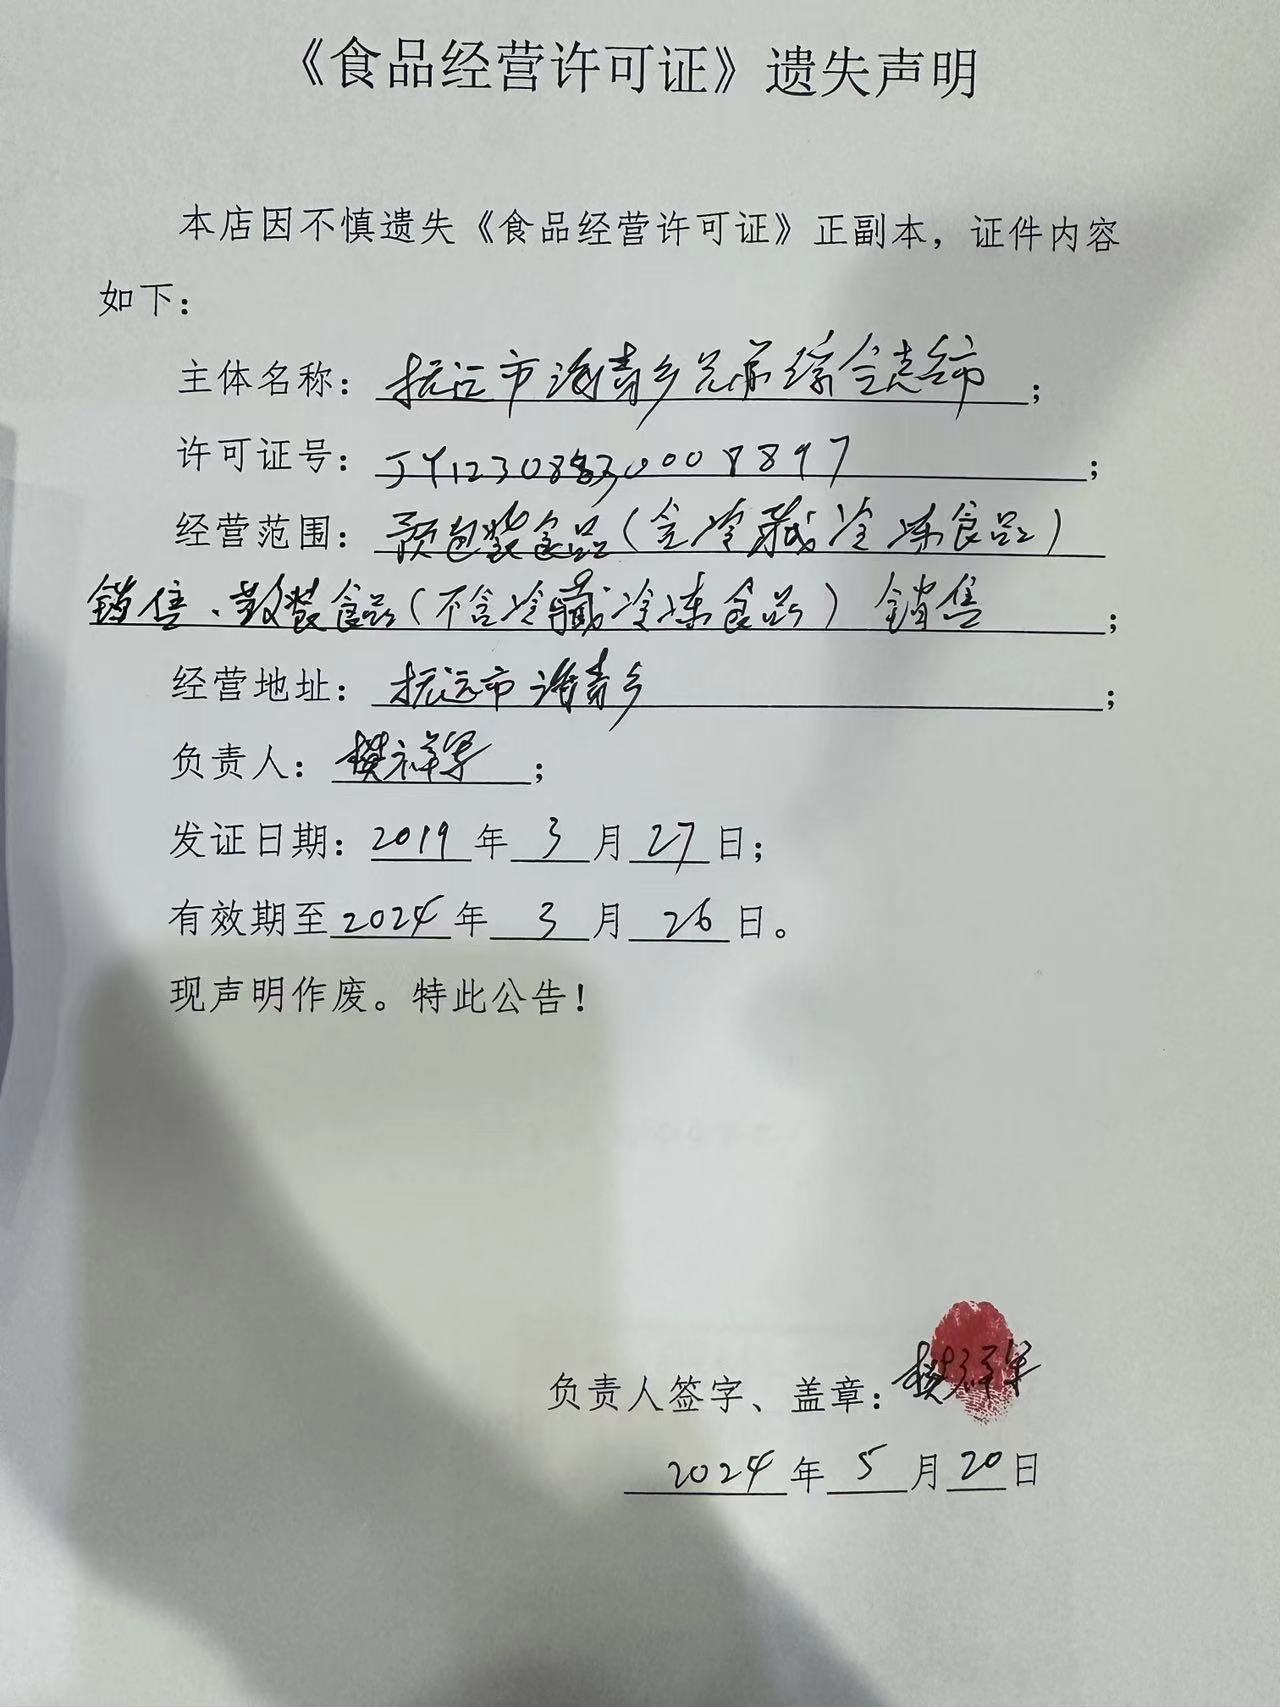 《食品经营许可证》遗失声明
本店因不慎遗失《食品经营许可证》正副本，证件内容
如下：
主体名称：抚远市海青乡兄弟综合超市；
许可证号：JY12308330008897；
经营范围：预包装食品(含冷藏冷冻食品)
销售、散装食品(不含冷藏冷冻食品)销售；
经营地址：抚远市海青乡；
负责人：樊祥军；
发证日期：2019年3月27日；
有效期至2024年3月26日。
现声明作废。特此公告！
负责人签字、盖章：樊祥军
2024年5月20日